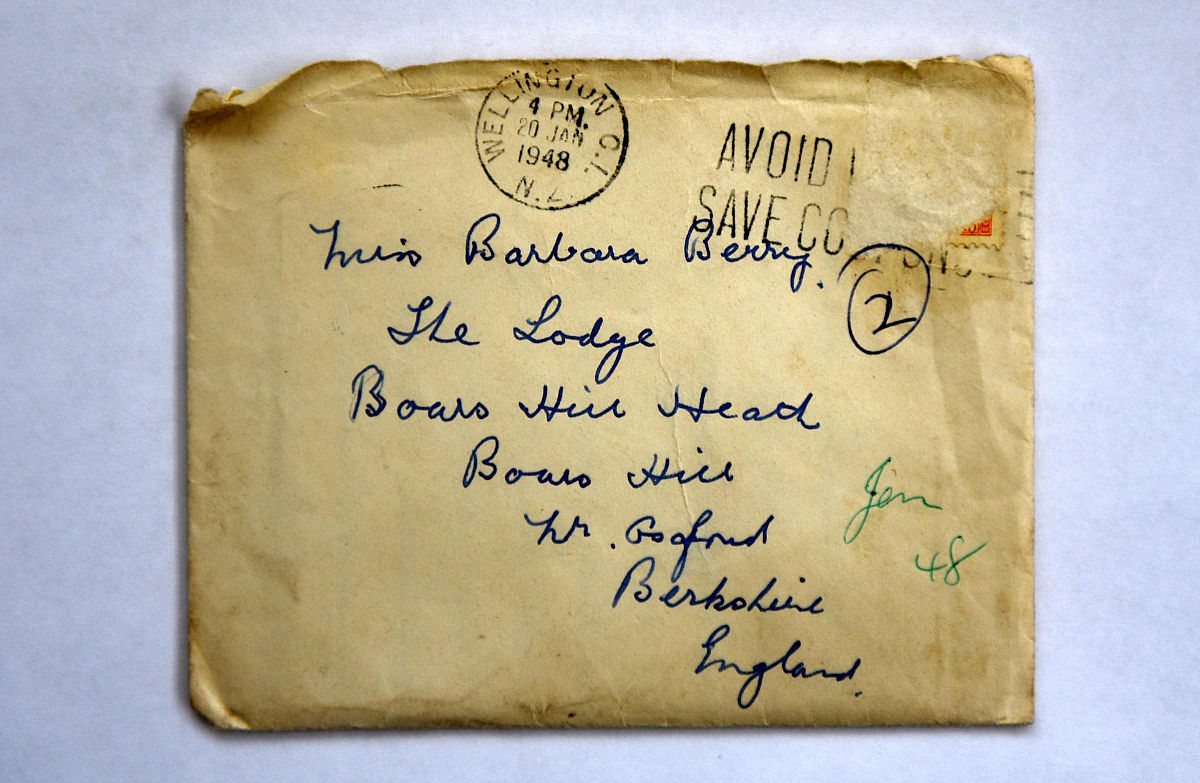 WELLINGTON C.1.
4 PM.
20 JAN
1948
N.Z.
AVOID
SAVE CO
Miss Barbara Berry.
2
The Lodge
Boars Hill Heath
Boars Hill
Nr. Oxford
Berkshire
England.
Jan
48